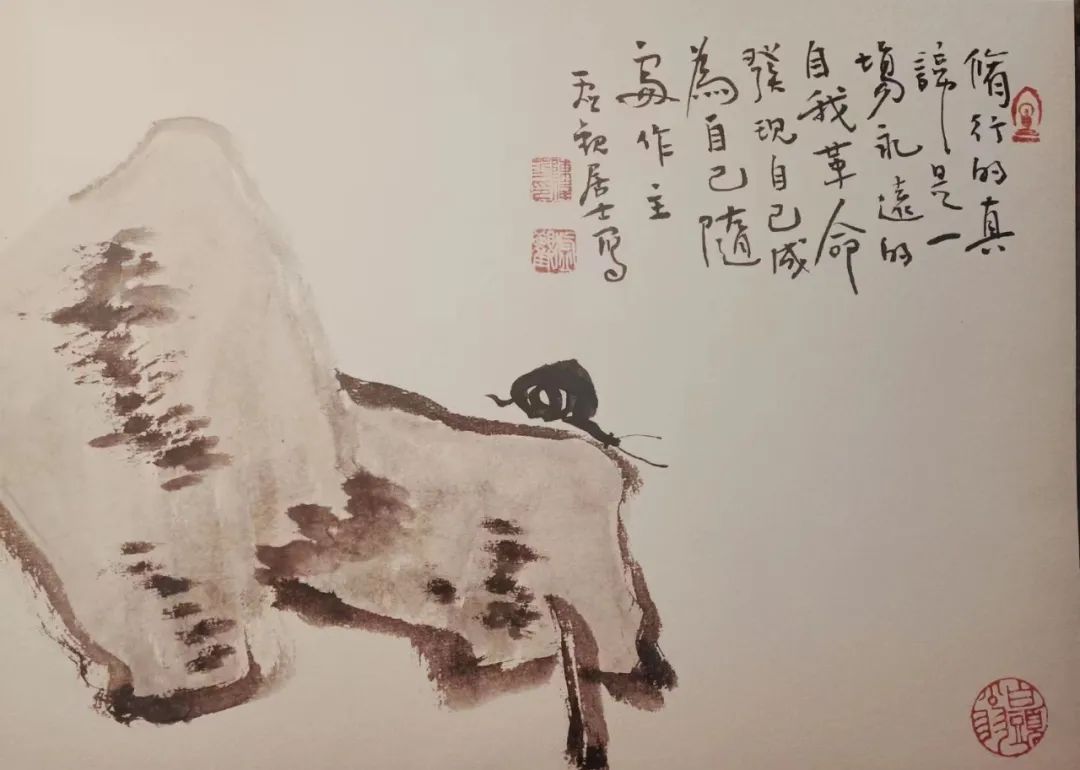 脩行的真
諦是一
場永遠的
自我革命
發現自己成
為自己隨
處作主
居士寫
白頭翁